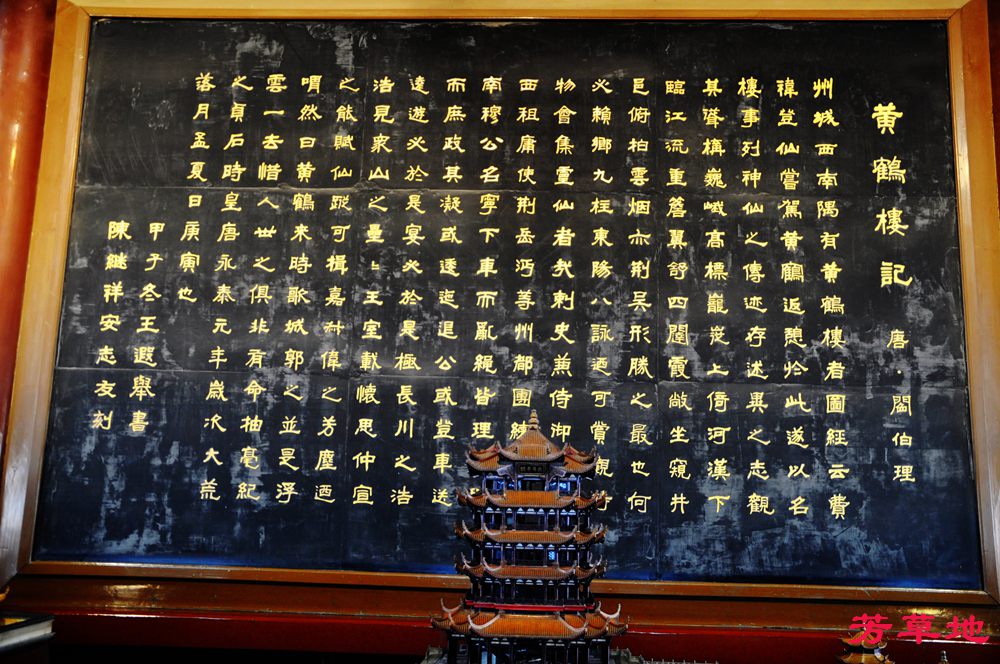 黃鶴樓記 唐·閻伯理
州城西南隅有黃鶴樓者圖經云費
禕登仙嘗駕黃鶴返憩於此遂以名
樓事列神仙之傳迹存述異之志觀
其聳構巍峨高標巃嵸上倚河漢下
臨江流重簷翼舒四闥霞敞坐窺井
邑俯拍雲烟亦荆吴形勝之最也何
必賴鄉九柱東陽八詠迺可賞觀時
物會集靈仙者哉刺史兼侍御
西租庸使荆岳沔等州都團練
南穆公名寧下車而亂繩皆理
而庶政其凝或逶迤退公或登車送
遠遊必於是宴必於是極長川之浩
浩見眾山之壘〻王室載懷思仲宣
之能賦仙蹤可揖嘉叔偉之芳塵迺
喟然曰黃鶴來時歌城郭之並是浮
雲一去惜人世之俱非有命抽毫紀
之貞石時皇唐永泰元年歲次大荒
落月孟夏日庚寅也
甲子冬王遐舉書
陳繼祥安志友刻
芳草地